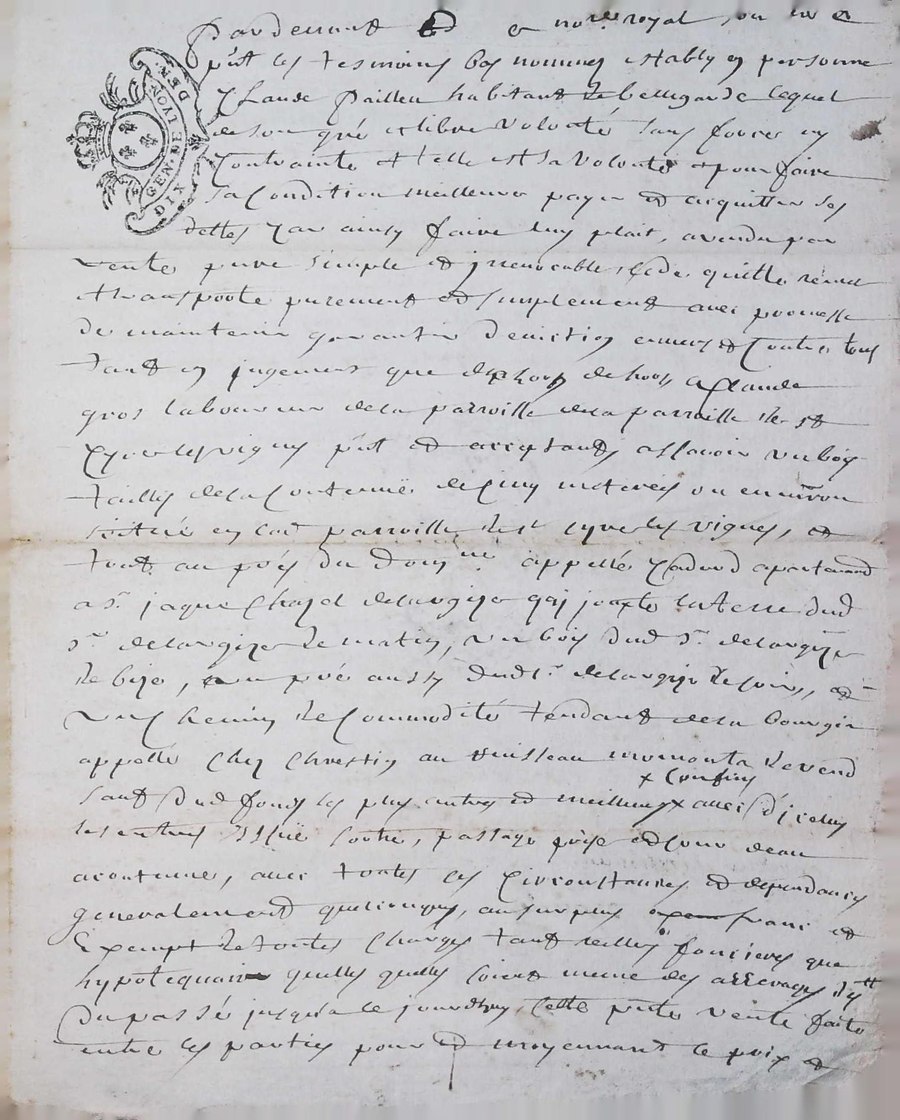 GEN. DE LYON.
DIX DEN.
Pardevant et notre royal
pnt les tesmoins bas nommes estably en personne
Claude Pailleu habitant de bellegarde lequel
de son gré et libre volonté sans force ny
Contrainte et telle est sa volonté et pour faire
sa Condition meilleure payer et acquitter ses
dettes Car ainsy faire luy plait, a vendu par
vente pure simple et irrevocable, cede quitte remet
et transporte purement et simplement avec promesse
de maintenir garantir deviction envers et Contre tous
tant en jugement que dehors a Claude
gros laboureur de la parroisse de la parroisse de st
Cyr les vignes pnt et acceptant assavoir un bois
taillis de la Contenüe de Cinq meterés ou environ
scitué en lad parroisse de st cyr les vignes, et
tout au pés du Domne appellé apartenant
a sr jaque Chazel delargize qui jouxte la terre dud
sr delargize de matin, un bois dud sr delargize
de bize, un pré aussy dud sr delargize de soir, et
un Chemin de Commodité tendant de la
appellé Chez Chrestin au ruisseau le vend
sauf dud fonds les plus autres et meilleurs x avec d'iceluy
x Confins
les entrées Issüe sortie, passage prise et Cour deau
acoutume, avec toutes ses Circonstances et dependances
generalement quelconques, au surplus franc et
Exempt de toutes Charges tant foncieres que
hypotequaire quelles quelles soient meme des arrerages d'ytt
Du passé jusqua le jourdhuy, Cette pnte vente faite
entre les parties pour et moyennant le prix et